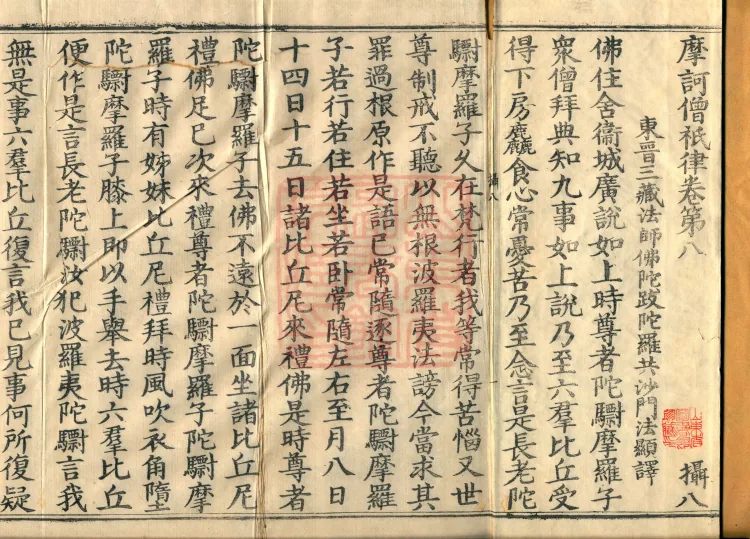 摩訶僧祇律卷第八
攝八
東晉三藏法師佛陀跋陀羅共沙門法顯譯
佛住舍衛城廣說如上時尊者陀驃摩羅子
衆僧拜典知九事如上說乃至六羣比丘受
得下房麤食心常憂苦乃至念言是長老陀
驃摩羅子久在梵行者我等常得苦惱又世
攝八
尊制戒不聽以無根波羅夷法謗今當求其
罪過根原作是語已常隨逐尊者陀驃摩羅
子若行若住若坐若卧常隨左右至月八日
十四日十五日諸比丘尼來禮佛是時尊者
陀驃摩羅子去佛不遠於一面坐諸比丘尼
禮佛足已次來禮尊者陀驃摩羅子陀驃摩
羅子時有姊妹比丘尼禮拜時風吹衣角墮
陀驃摩羅子膝上即以手舉去時六羣比丘
便作是言長老陀驃汝犯波羅夷陀驃言我
無是事六羣比丘復言我已見事何所復疑